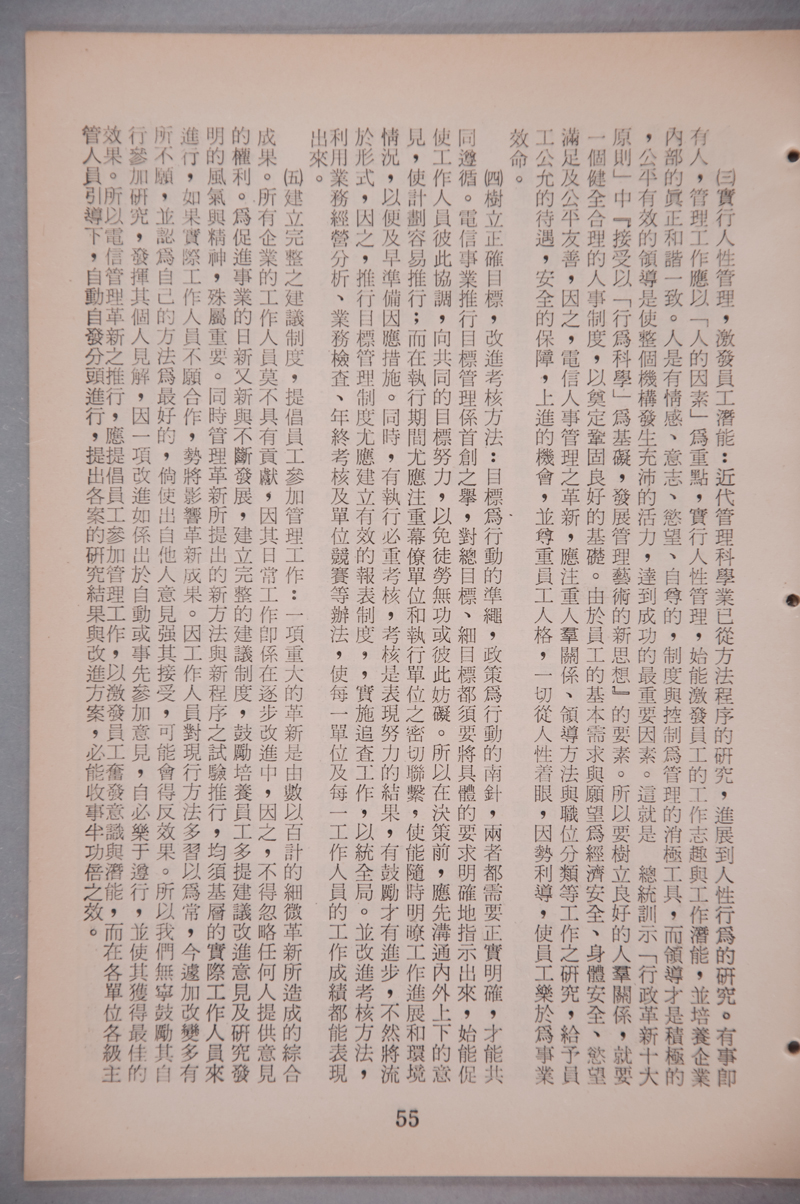 ㈢實行人性管理，激發員工潛能：近代管理科學業已從方法程序的研究，進展到人性行爲的研究。有事卽
有人，管理工作應以「人的因素」爲重點，實行人性管理，始能激發員工的工作志趣與工作潛能，並培養企業
內部的眞正和諧一致。人是有情感、意志、慾望、自尊的，制度與控制爲管理的消極工具，而領導才是積極的
，公平有效的領導是使整個機構發生充沛的活力，達到成功的最重要因素。這就是　總統訓示「行政革新十大
原則」中『接受以「行爲科學」爲基礎，發展管理藝術的新思想』的要素。所以要樹立良好的人羣關係，就要
一個健全合理的人事制度，以奠定鞏固良好的基礎。由於員工的基本需求與願望爲經濟安全、身體安全、慾望
滿足及公平友善，因之，電信人事管理之革新，應注重人羣關係、領導方法與職位分類等工作之研究，給予員
工公允的待遇，安全的保障，上進的機會，並尊重員工人格，一切從人性着眼，因勢利導，使員工樂於爲事業
效命。
㈣樹立正確目標，改進考核方法：目標爲行動的準繩，政策爲行動的南針，兩者都需要正實明確，才能共
同遵循。電信事業推行目標管理係首創之舉，對總目標、細目標都須要將具體的要求明確地指示出來，始能促
使工作人員彼此協調，向共同的目標努力，以免徒勞無功或彼此妨礙。所以在決策前，應先溝通內外上下的意
見，使計劃容易推行；而在執行期間尤應注重幕僚單位和執行單位之密切聯繫，使能隨時明瞭工作進展和環境
情況，以便及早準備因應措施。同時，有執行必重考核，考核是表現努力的結果，有鼓勵才有進步，不然將流
於形式，因之，推行目標管理制度尤應建立有效的報表制度，，實施追查工作，以統全局。並改進考核方法，
利用業務經營分析、業務檢查、年終考核及單位競賽等辦法，使每一單位及每一工作人員的工作成績都能表現
出來。
㈤建立完整之建議制度，提倡員工參加管理工作：一項重大的革新是由數以百計的細微革新所造成的綜合
成果。所有企業的工作人員莫不具有貢獻，因其日常工作卽係在逐步改進中，因之，不得忽略任何人提供意見
的權利。爲促進事業的日新又新與不斷發展，建立完整的建議制度，鼓勵培養員工多提建議改進意見及研究發
明的風氣與精神，殊屬重要。同時管理革新所提出的新方法與新程序之試驗推行，均須基層的實際工作人員來
進行，如果實際工作人員不願合作，勢將影響革新成果。因工作人員對現行方法多習以爲常，今遽加改變多有
所不願，並認爲自己的方法爲最好的，倘使出自他人意見强其接受，可能會得反效果。所以我們無寧鼓勵其自
行參加研究，發揮其個人見解，因一項改進如係出於自動或事先參加意見，自必樂于遵行，並使其獲得最佳的
效果。所以電信管理革新之推行，應提倡員工參加管理工作，以激發員工奮發意識與潛能，而在各單位各級主
管人員引導下，自動自發分頭進行，提出各案的研究結果與改進方案，必能收事半功倍之效。
55